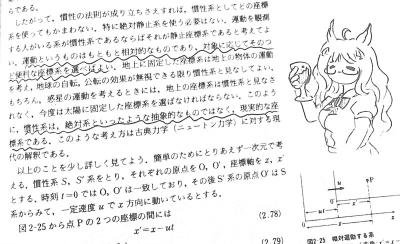 らである.
したがって, 慣性の法則が成り立ちさえすれば, 慣性系としてどの座標
系を使ってもかまわない. 特に絶対静止系を使う必要はない. 運動を観測
する人がいる系が慣性系であるならばそれが静止座標系であると考えてよ
い. 運動というものはもともと相対的なものであり, 対象に応じてそのつ
ど便利な座標系を選べばよい. 地上に固定した座標系は地上の物体の運動
を考え, 地球の自転, 公転の効果が無視できる限り慣性系と見なしてよい.
もちろん, 惑星の運動を考えるときには, 地上の座標系は慣性系と見なさ
れなく, 今度は太陽に固定した座標系を選ばなければならない. このよう
に, 慣性系は, 絶対系といったような抽象的なものではなく, 現実的な座
標系である. このような考え方は古典力学(ニュートン力学)に対する現
代の解釈である.
以上のことを少し詳しく見てよう. 簡単のためにとりあえず一次元で考
える. 慣性系 S, S′系をとり, それぞれの原点を O, O′, 座標軸を x, x′
とする. 時刻 t=0 では O, O′は一致しており, その後 S′系の原点 O′は S
系からみて, 一定速度 u で x 方向に動いているとする.
図2-25から点Pの2つの座標の間には
x′=x−ut (2.78)
(2.79)
u
P
ut
x′
O
O′
x
図2-25 相対運動する系